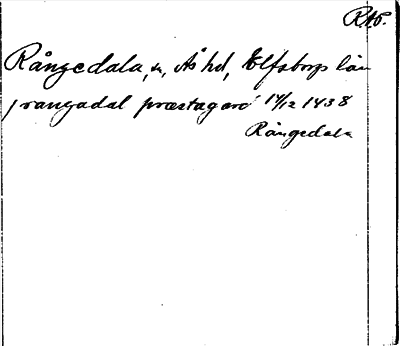 RAp.
Rångedala, sn, Ås hd, Elfsborgs län
j rangadal præstagard 14/12 1438
Rångedala